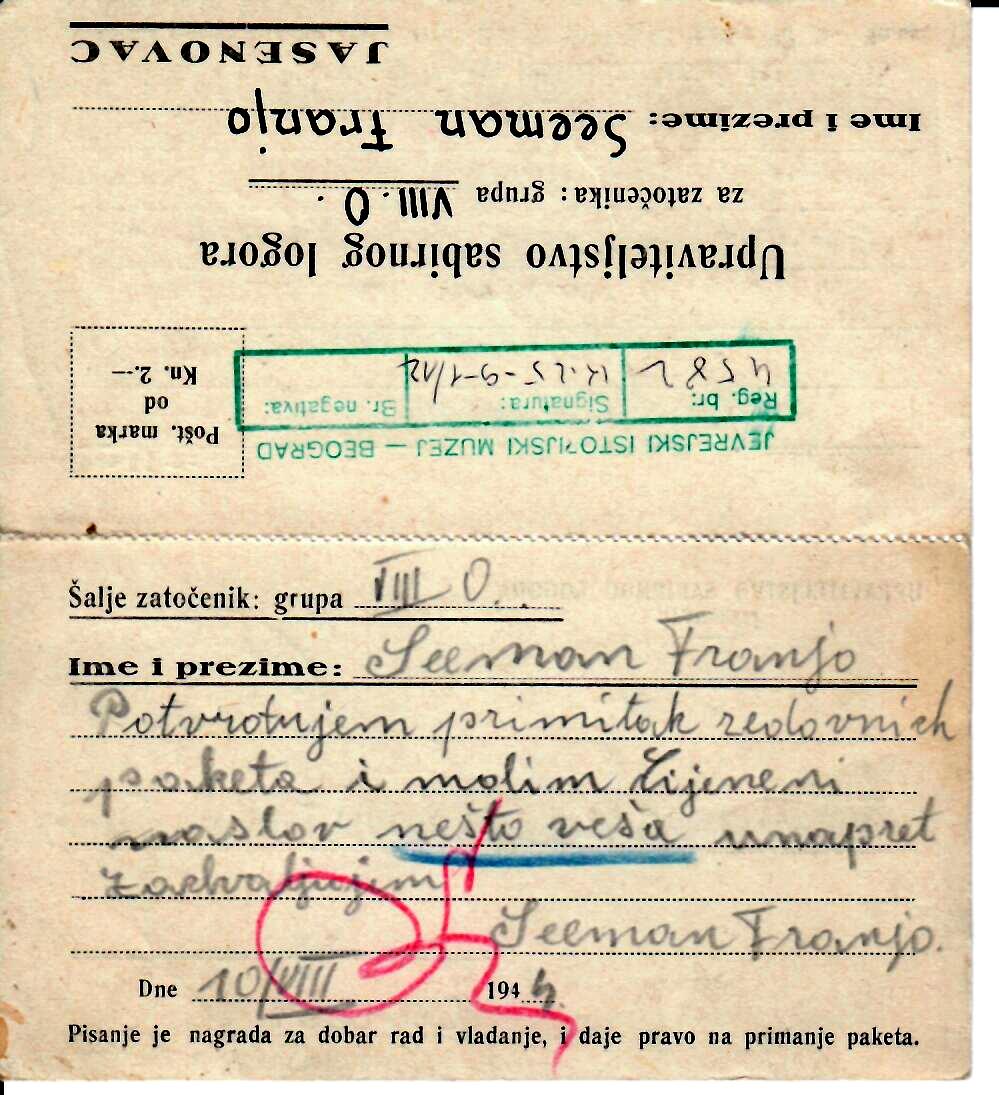 Upraviteljstvo sabirnog logora
za zatočenika: grupa VIII. O.
Ime i prezime: Seeman Franjo
JASENOVAC
Pošt. marka
od
Kn. 2.—
JEVREJSKI ISTORIJSKI MUZEJ — BEOGRAD
Reg. br: 4582 Signatura: K.25-9-1/12 Br. negativa:
Šalje zatočenik: grupa VIII O.
Ime i prezime: Seeman Franjo
Potvrđujem primitak redovnih
paketa i molim Cijeneni
naslov nešto veša unapret
zahvaljujem
Seeman Franjo.
Dne 10/VIII 1944.
Pisanje je nagrada za dobar rad i vladanje, i daje pravo na primanje paketa.